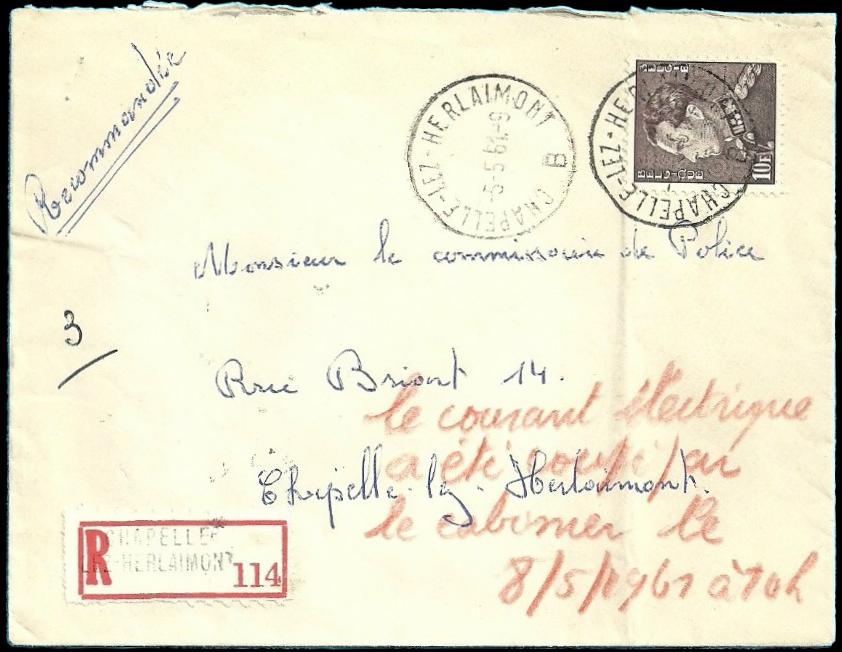 Recommandée
CHAPELLE-LEZ-HERLAIMONT
B
-5-5 61-9
CHAPELLE-LEZ-HER
BELGIE
BELGIQUE
10F
Monsieur le commissaire de Police
3
Rue Briart 14.
Chapelle-lez-Herlaimont.
le courant électrique
a été coupé par
le cabinier le
8/5/1961 à 10h
R
CHAPELLE-
LEZ-HERLAIMONT
114